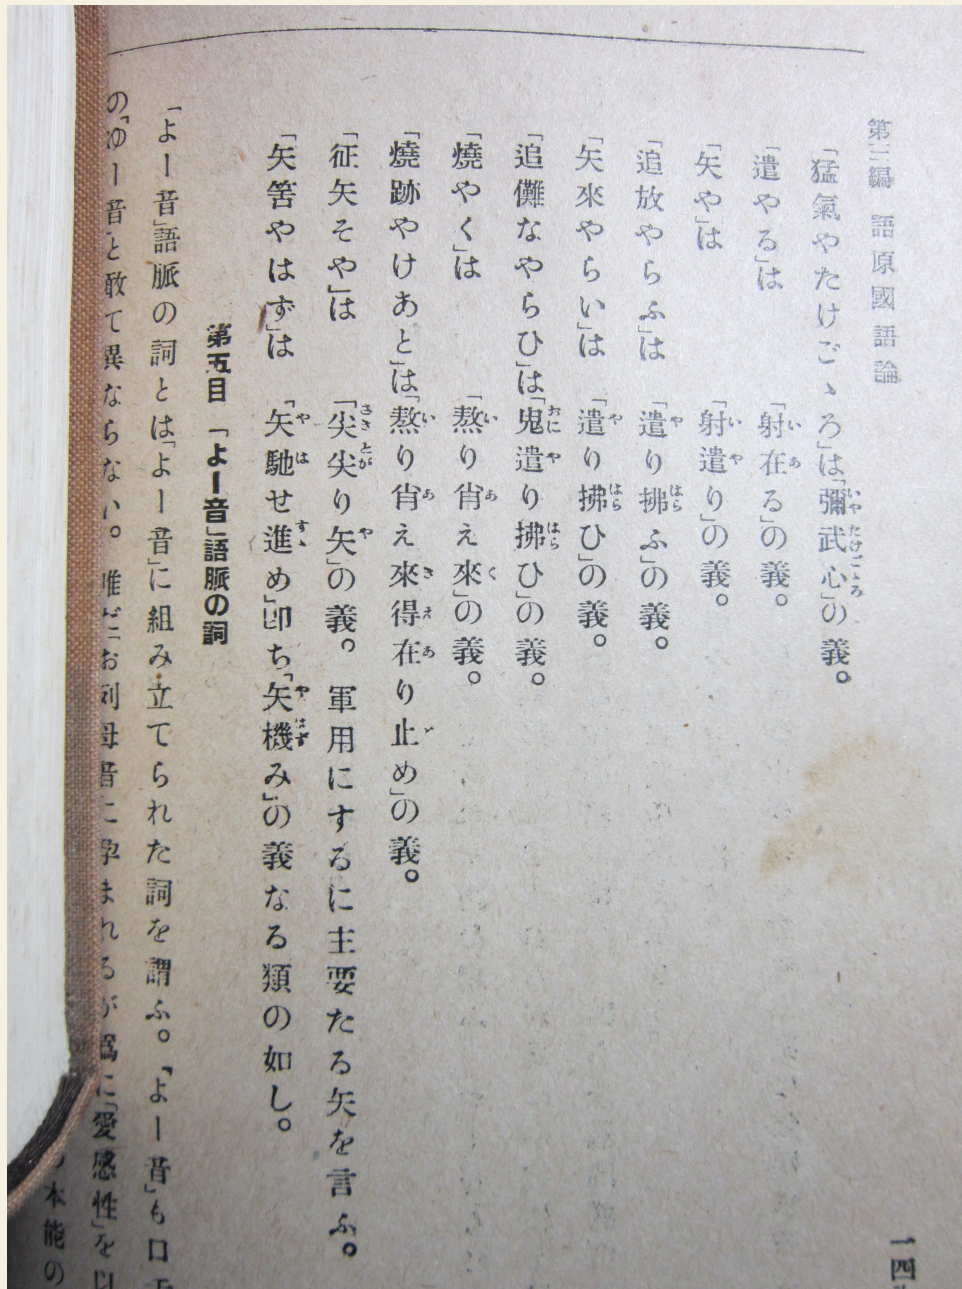 第三編 語原國語論
一四
「猛氣やたけごゝろ」は「彌武心」の義。
「遣やる」は「射在る」の義。
「矢や」は「射遣り」の義。
「追放やらふ」は「遣り拂ふ」の義。
「矢來やらい」は「遣り拂ひ」の義。
「追儺なやらひ」は「鬼遣り拂ひ」の義。
「燒やく」は「熬り肯え來」の義。
「燒跡やけあと」は「熬り肯え來得在り止め」の義。
「征矢そや」は「尖尖り矢」の義。軍用にするに主要たる矢を言ふ。
「矢筈やはず」は「矢馳せ進め」卽ち「矢機み」の義なる類の如し。
第五目 「よー音」語脈の詞
「よー音」語脈の詞とは「よー音」に組み立てられた詞を謂ふ。「よー音」も口
の「ゆー音」と敢て異ならない。唯だ「お列母音に孕まれるが爲に「愛感性」を以
本能の